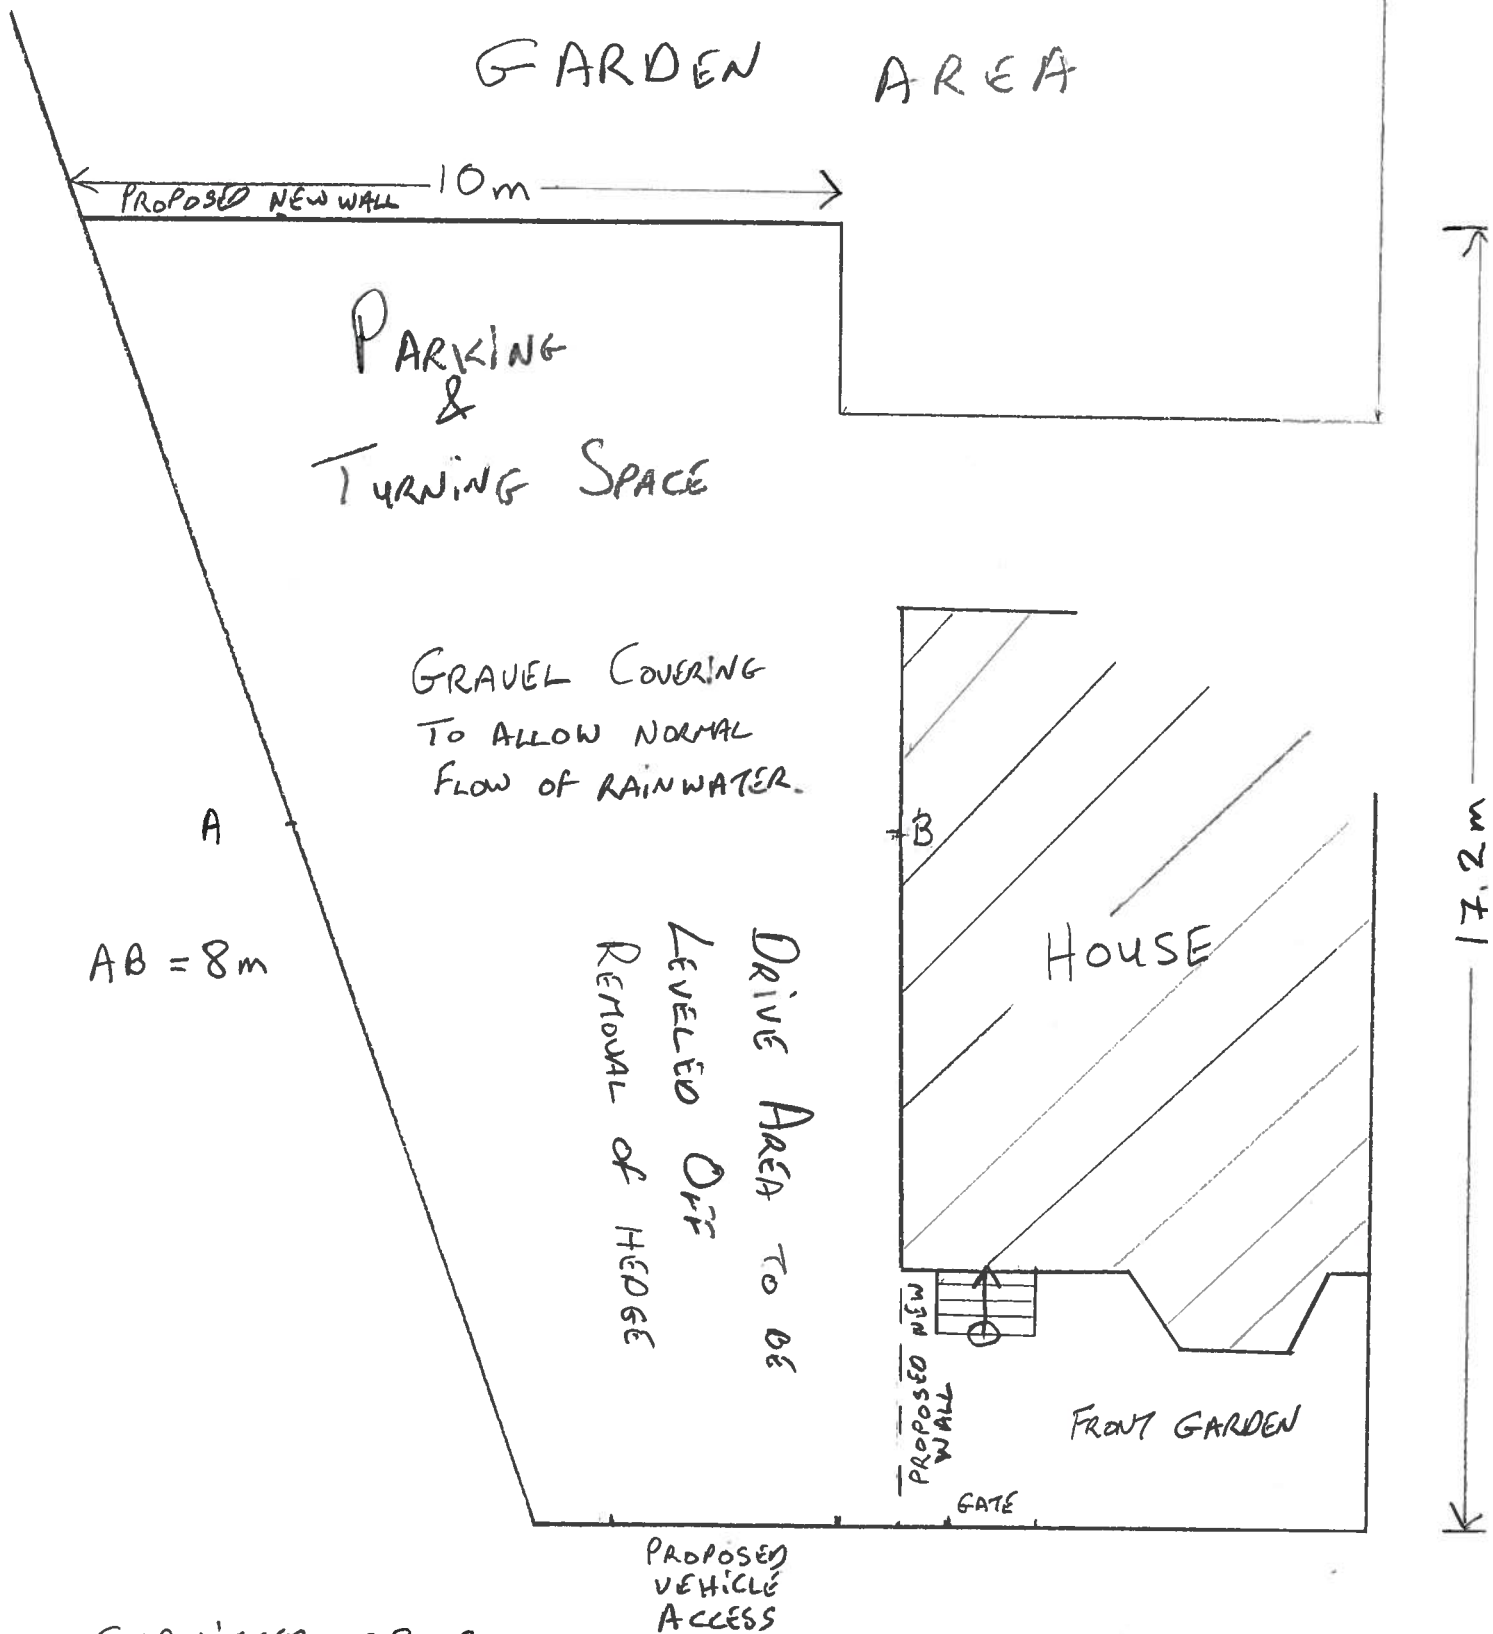 GARDEN AREA
10m
PROPOSED NEW WALL
PARKING
&
TURNING SPACE
GRAVEL COVERING
TO ALLOW NORMAL
FLOW OF RAINWATER.
A
B
AB = 8m
HOUSE
17.2m
DRIVE AREA TO BE
LEVELED OFF
REMOVAL OF HEDGE
PROPOSED NEW
WALL
FRONT GARDEN
GATE
PROPOSED
VEHICLE
ACCESS